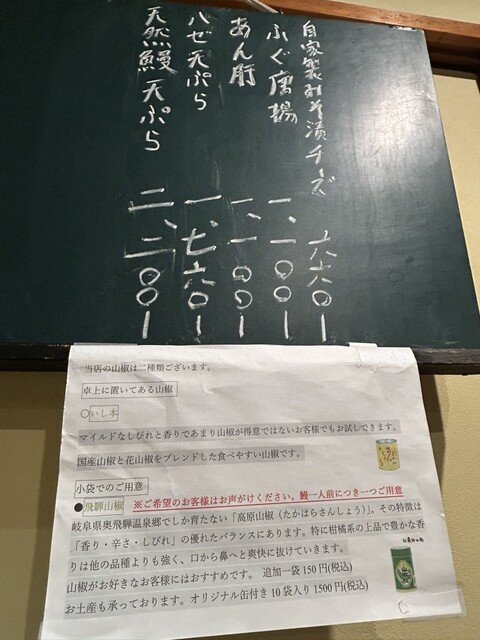 自家製みそ漬チーズ 六六〇ー
ふぐ唐揚 一、一〇〇ー
あん肝 一、一〇〇ー
ハゼ天ぷら 一、七六〇ー
天然鰻天ぷら 二、二〇〇ー
当店の山椒は二種類ございます。
卓上に置いてある山椒
〇いし本
マイルドなしびれと香りであまり山椒が得意ではないお客様でもお試しできます。
国産山椒と花山椒をブレンドした食べやすい山椒です。
小袋でのご用意
●飛騨山椒 ※ご希望のお客様はお声がけください。鰻一人前につき一つご用意
岐阜県奥飛騨温泉郷でしか育たない「高原山椒（たかはらさんしょう）」。その特徴は
「香り・辛さ・しびれ」の優れたバランスにあります。特に柑橘系の上品で豊かな香
りは他の品種よりも強く、口から鼻へと爽快に抜けていきます。
山椒がお好きなお客様にはおすすめです。 追加一袋 150 円(税込)
お土産も承っております。オリジナル缶付き 10 袋入り 1500 円(税込)